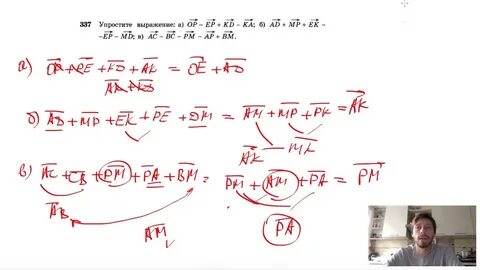 337 Упростите выражение: а) OP − EP + KD − KA; б) AD + MP + EK −
−EP − MD; в) AC − BC − PM − AP + BM.
а) OP + PE + KD + AK = OE + AD
AK + KD
б) AD + MP + EK + PE + DM = AM + MP + PK = AK
AK MK
в) AC + CB + PM + PA + BM = PM + AM + PA = PM
AB
AM PA